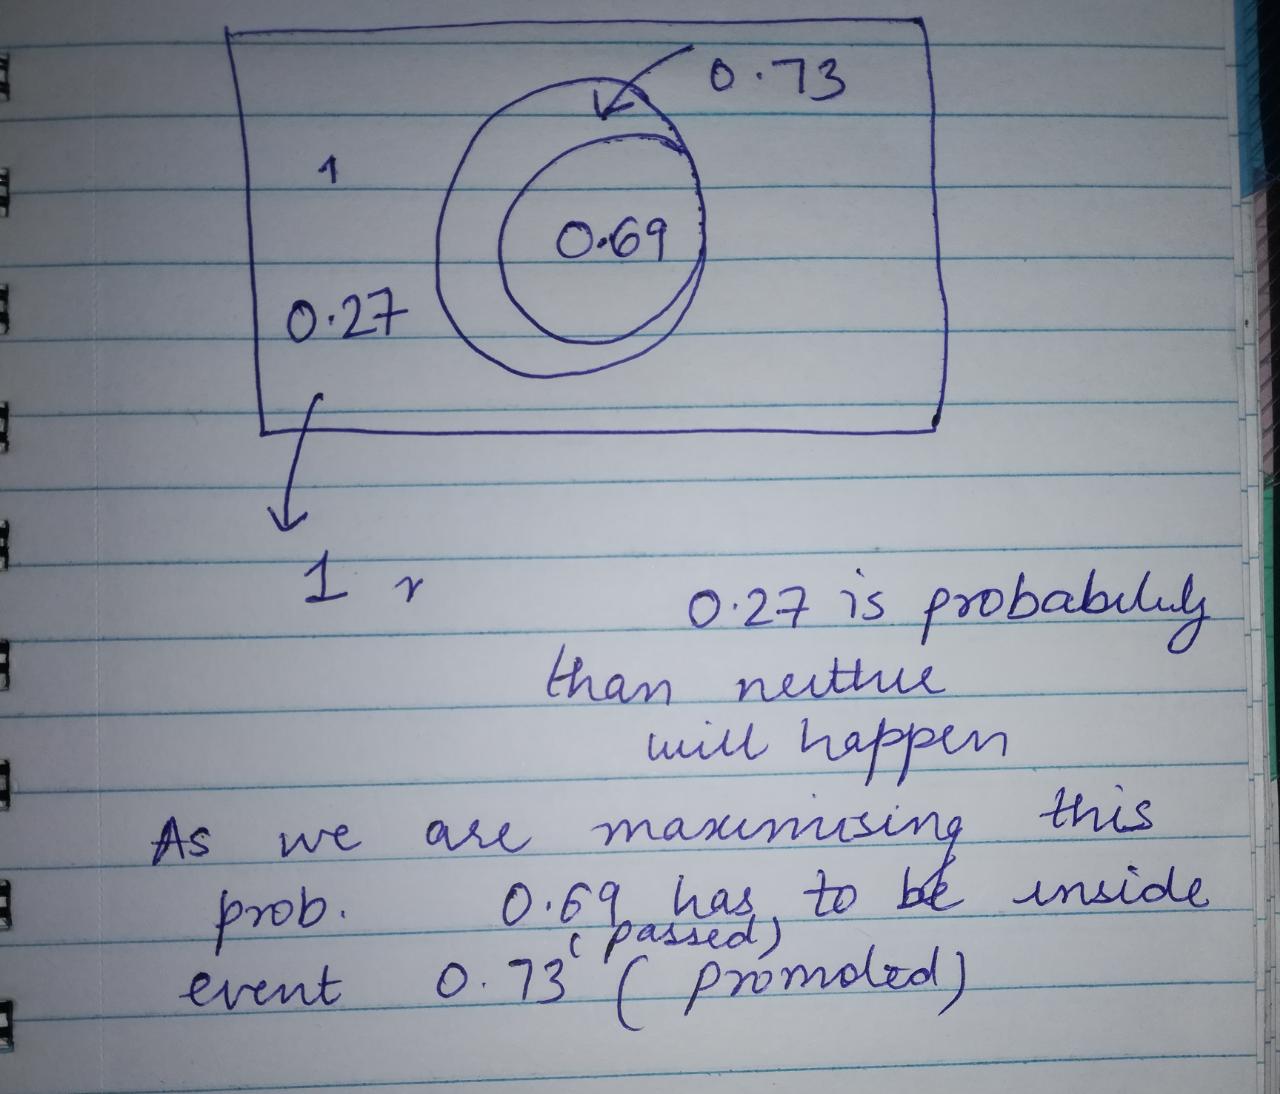 0.73
1
0.69
0.27
1 r
0.27 is probability
than neither
will happen
As we are maximising this
prob. 0.69 has to be inside
(passed)
event 0.73 (promoted)